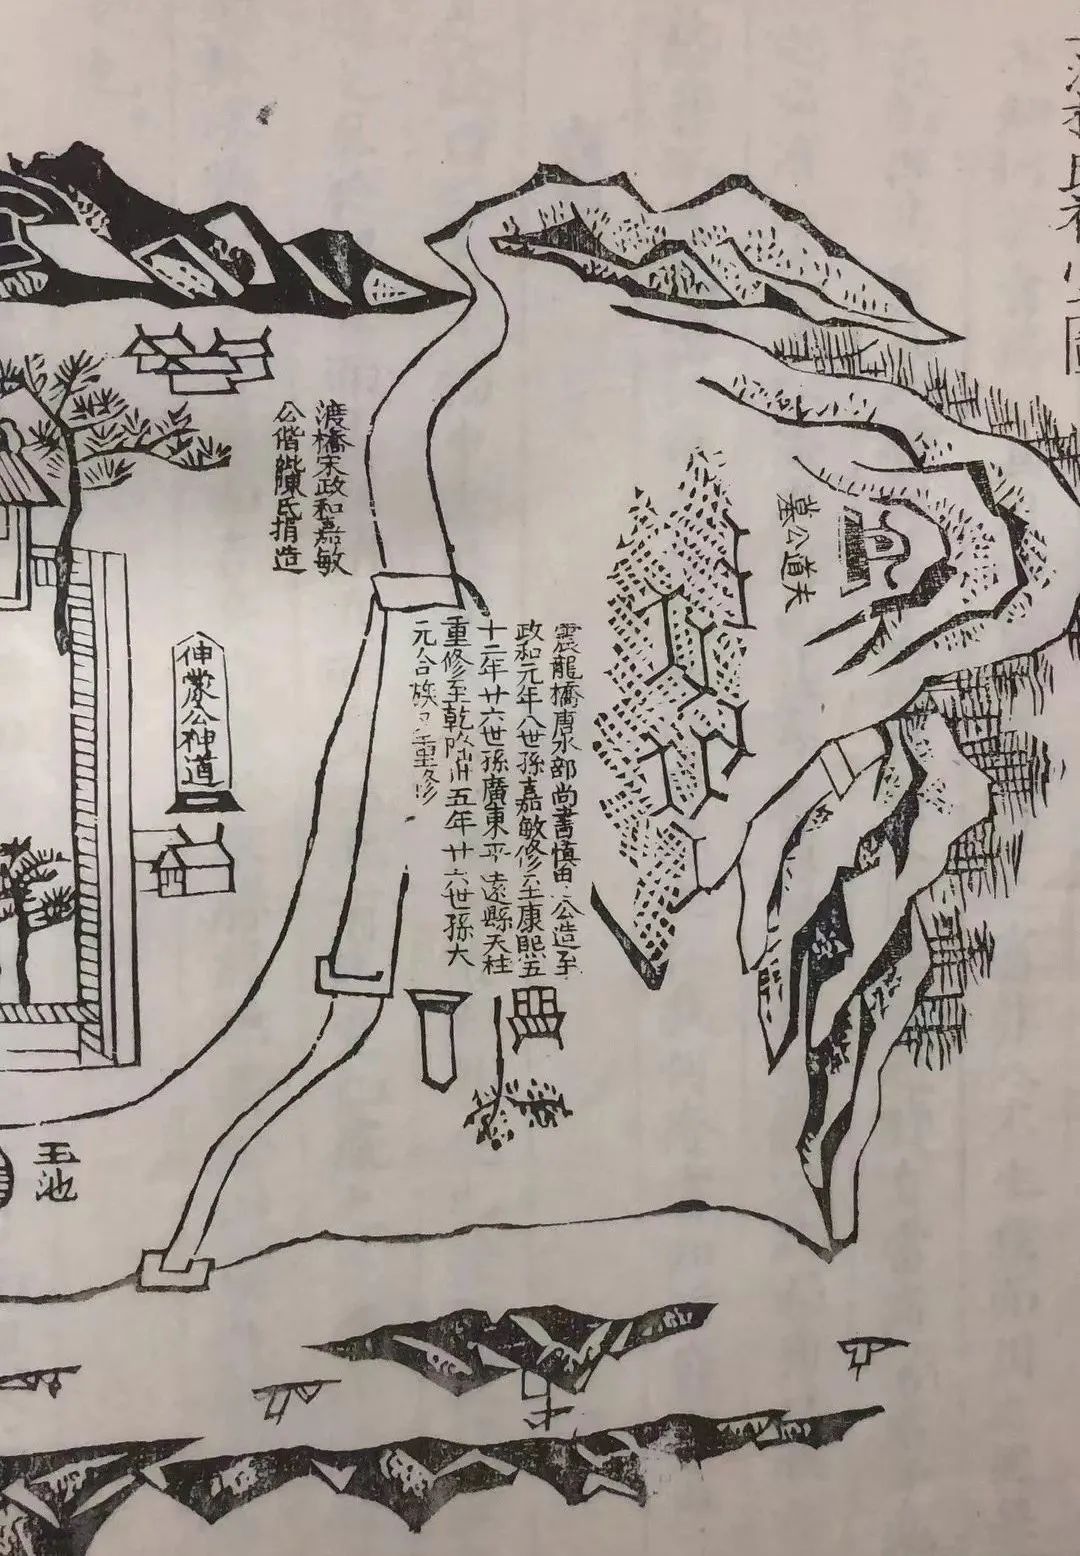 墓公道夫
震龍橋唐水部尚書慎公造至
政和元年八世孫嘉敏修至康熙五
十二年廿六世孫廣東平遠縣天柱
重修至乾隆卅五年廿六世孫大
元合族重修
渡橋宋政和嘉敏
公偕継陳氏捐造
伸蒙公神道
玉池